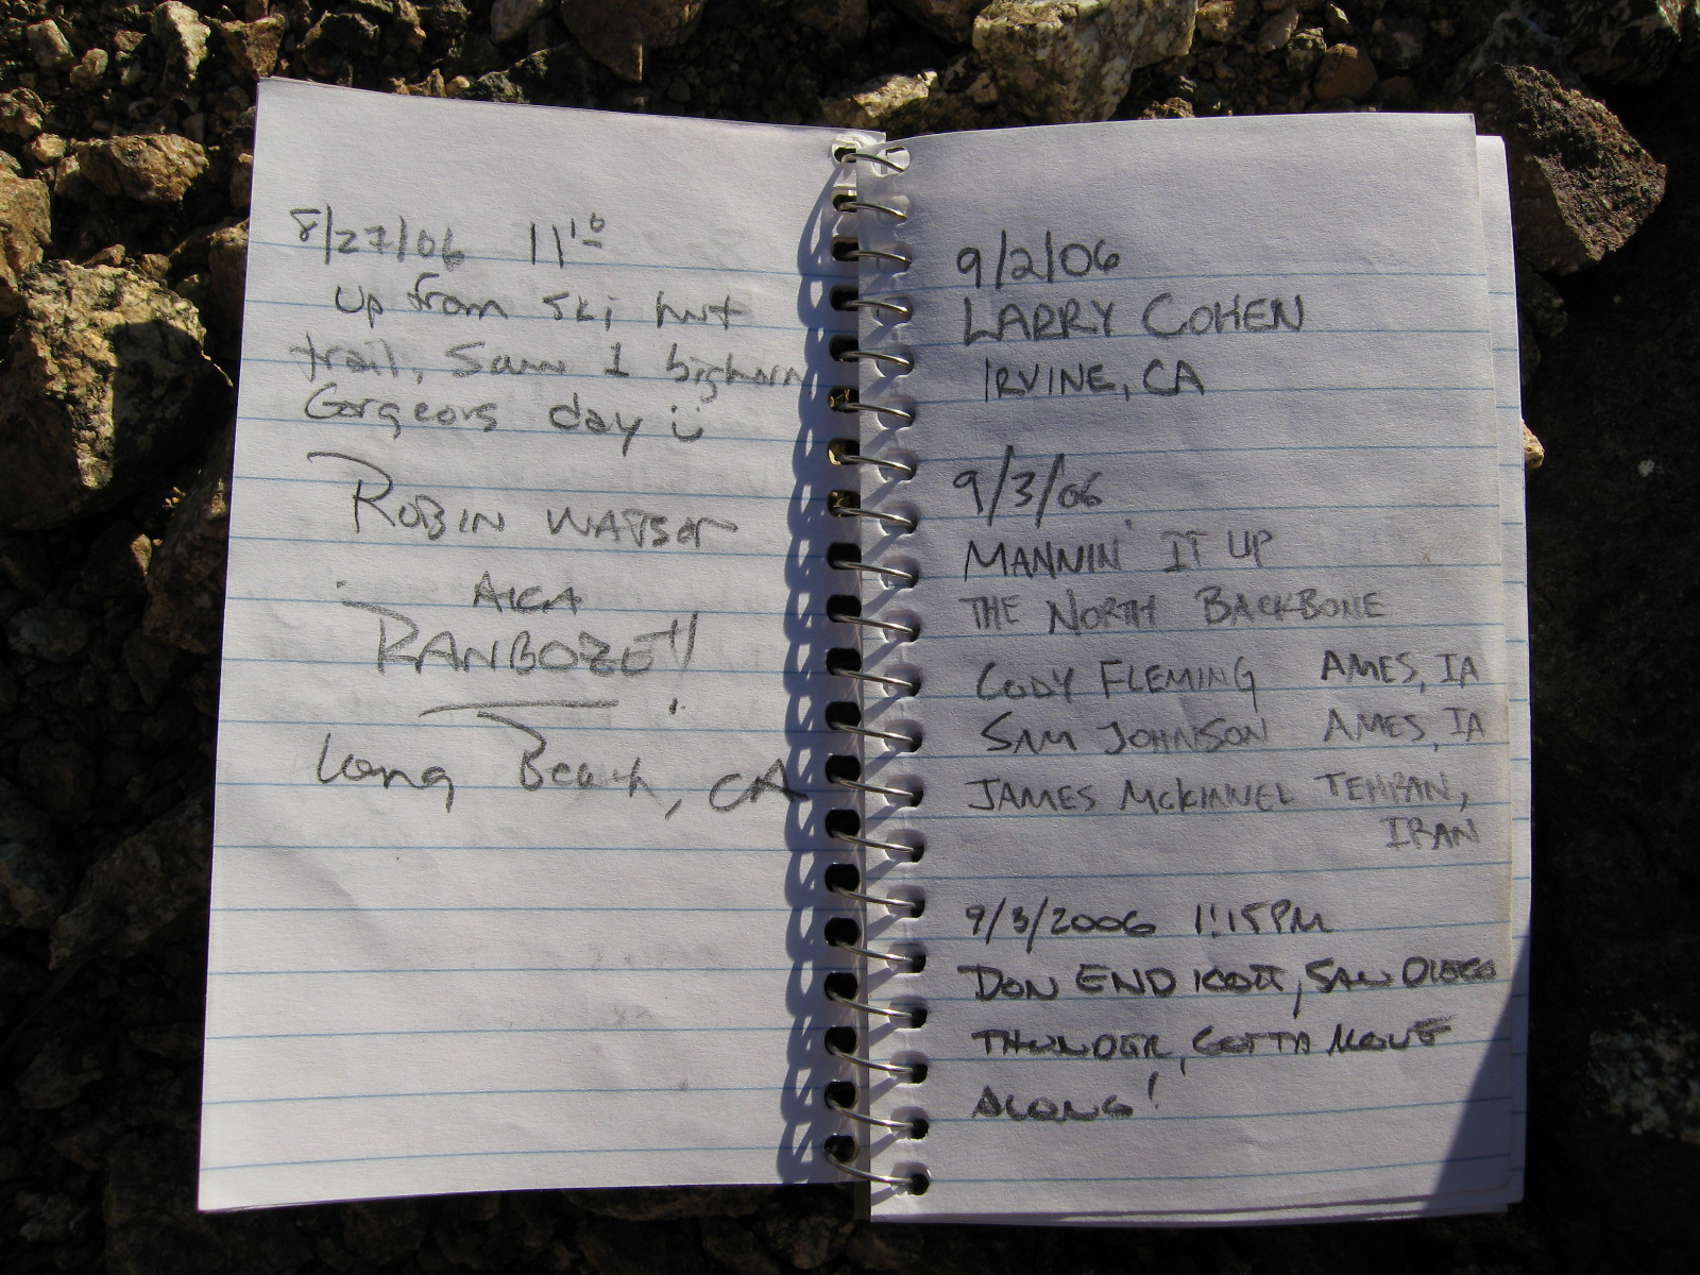 8/27/06 11:10
up from ski hut
trail, Saw 1 bighorn
Gorgeous day ü
ROBIN WATSON
AKA
RANBOZE!!
Long Beach, CA
9/2/06
LARRY COHEN
IRVINE, CA
9/3/06
MANNIN' IT UP
THE NORTH BACKBONE
CODY FLEMING AMES, IA
SAM JOHNSON AMES, IA
JAMES MCKINNEL TEHRAN,
IRAN
9/3/2006 1:15PM
DON ENDICOTT, SAN DIEGO
THUNDER, GOTTA MOVE
ALONG!